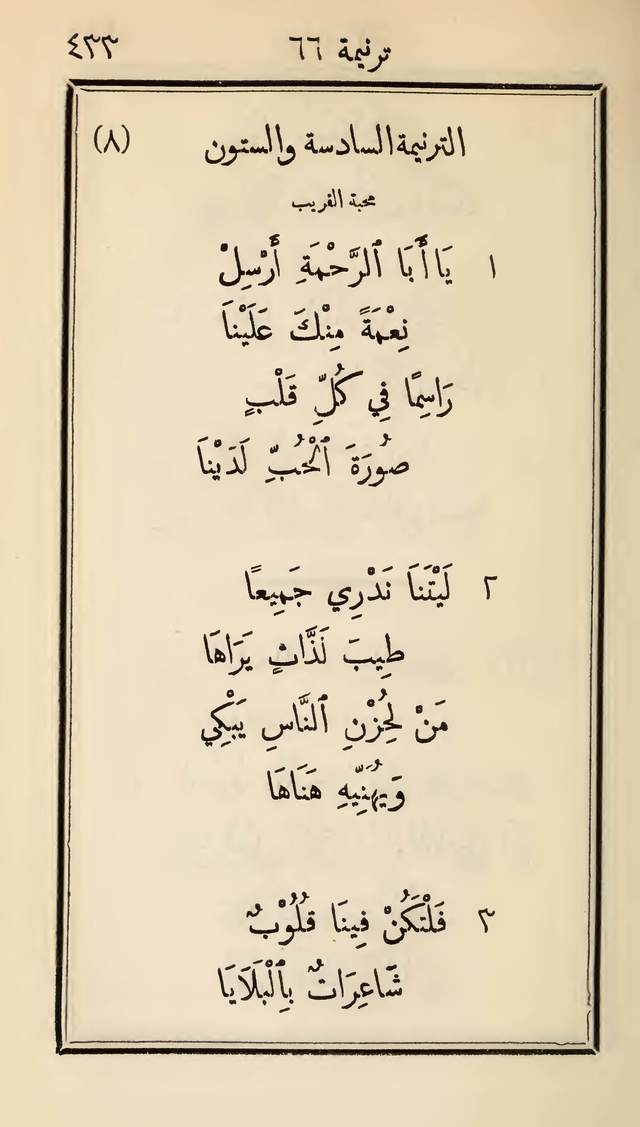 ترنيمة ٦٦ ٤٣٣
الترنيمة السادسة والستون (٨)
محبة القريب
١ يَا أَبَا ٱلرَّحْمَةِ أَرْسِلْ
نِعْمَةً مِنْكَ عَلَيْنَا
رَاسِمًا فِي كُلِّ قَلْبٍ
صُورَةَ ٱلْحُبِّ لَدَيْنَا
٢ لَيْتَنَا نَدْرِي جَمِيعًا
طِيبَ لَذَّاتٍ يَرَاهَا
مَنْ لِحُزْنِ ٱلنَّاسِ يَبْكِي
وَيُهَنِّيهِ هَنَاهَا
٣ فَلْتَكُنْ فِينَا قُلُوْبٌ
شَاعِرَاتٌ بِٱلْبَلَايَا